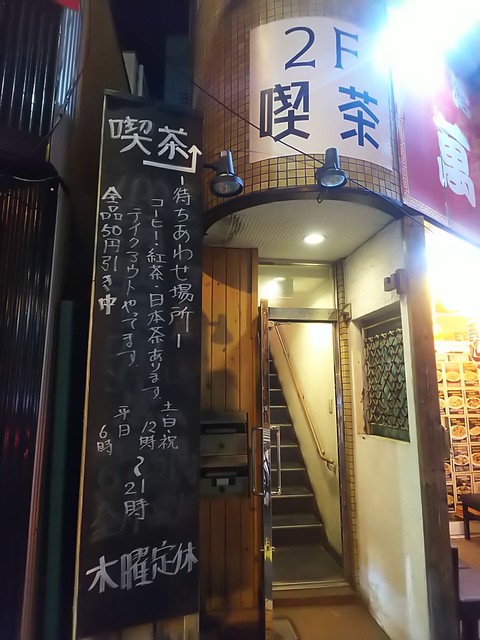 2F
喫茶
萬
喫茶
待ちあわせ場所
コーヒー・紅茶・日本茶あります。
テイクアウトやってます。
全品50円引き中
土・日・祝
12時
平日
6時
〜21時
木曜定休